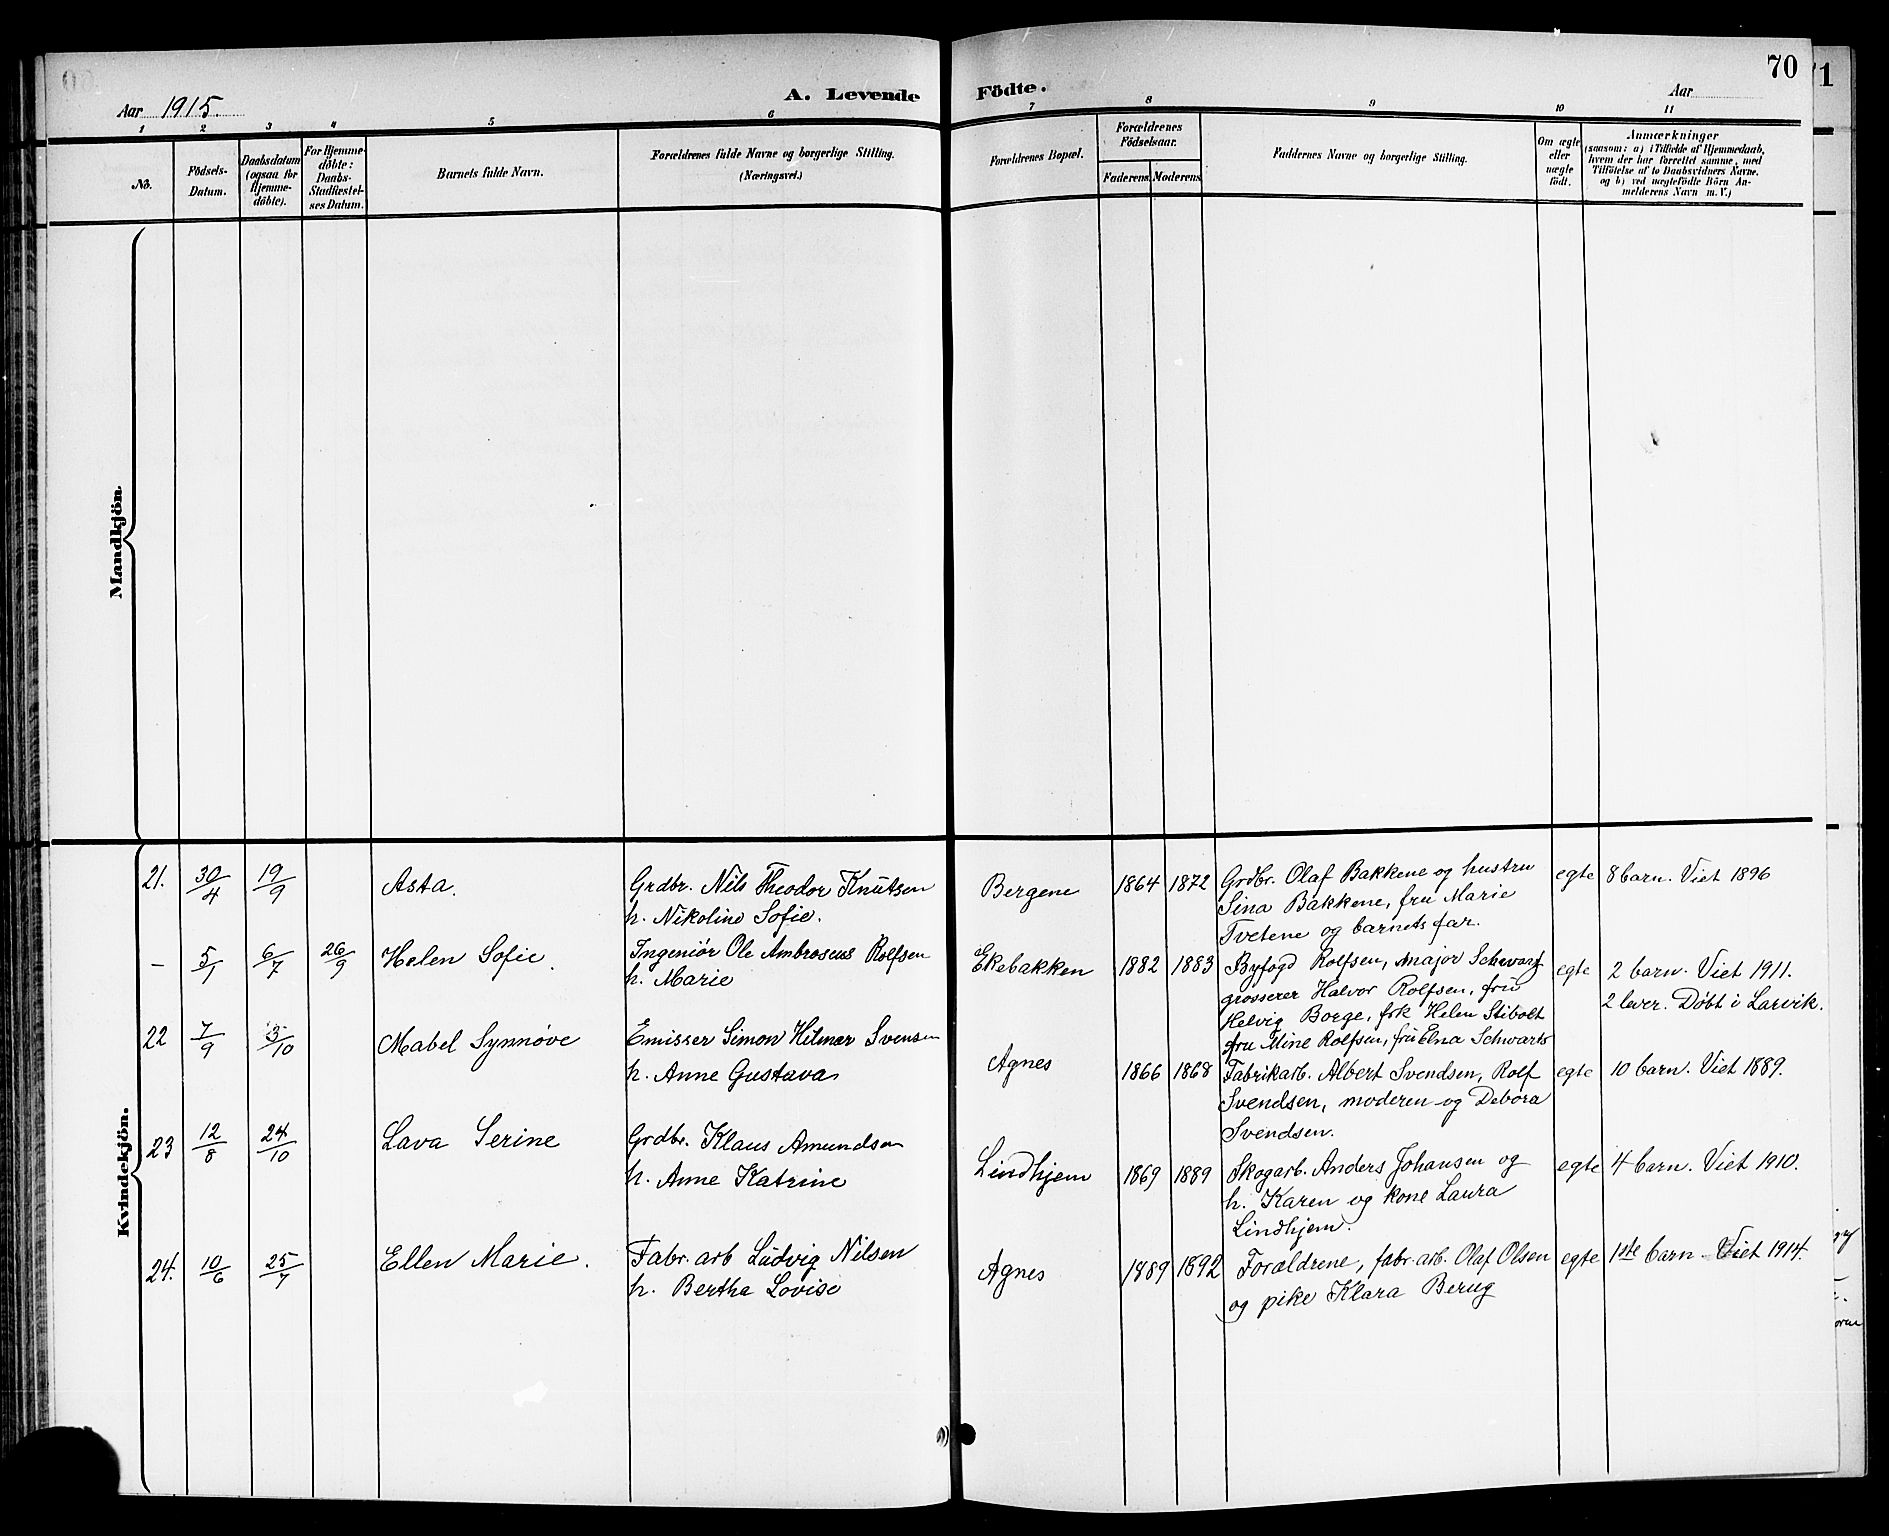 70
71
Aar 1915.
A. Levende Födte.
Aar
1 2 3 4 5 6 7 8 9 10 11
No.
Födsels-Datum.
Daabsdatum (ogsaa for Hjemme-döbte).
For Hjemme-döbte: Daabs-Stadfæstel-ses Datum.
Barnets fulde Navn.
Forældrenes fulde Navne og borgerlige Stilling.
(Næringsvei.)
Forældrenes Bopæl.
Forældrenes Födselsaar.
Faderens. Moderens.
Faddernes Navne og borgerlige Stilling.
Om ægte eller uægte födt.
Anmærkninger
(saasom: a) i Tilfælde af Hjemmedaab,
hvem der har forrettet samme, med
Tilföielse af to Daabsvidners Navne.
og b) ved uægtefödte Börn An-
melderens Navn m. V.)
Mandkjön.
Kvindekjön.
21. 30/4 19/9 Asta. Grdbr. Nils Theodor Knutsen Bergene 1864 1872 Grdbr. Olaf Bakkene og hustru egte 8 barn. Viet 1896
h. Nikoline Sofie. Sina Bakkene, fru Marie
Tvetene og barnets far.
– 5/1 6/7 26/9 Helen Sofie. Ingeniör Ole Ambrosius Rolfsen Ekebakken 1882 1883 Byfogd Rolfsen, Major Schwartz egte 2 barn. Viet 1911.
h. Marie grosserer Halvor Rolfsen, fru 2 lever. Döbt i Larvik.
Helvig Borge, frk Helen Stibolt
fru Mine Rolfsen, fru Elna Schwartz
22 7/9 3/10 Mabel Synnöve Emissær Simon Hilmar Svensen
h. Anne Gustava Agnes 1866 1868 Fabrikarb. Albert Svendsen, Rolf egte 10 barn. Viet 1889.
Svendsen, moderen og Debora
Svendsen.
23 12/8 24/10 Lava Serine Grdbr. Klaus Amundsen
h. Anne Katrine Lindhjem 1869 1889 Skogarb. Anders Johansen og egte 4 barn. Viet 1910.
h. Karen og kone Laura
Lindhjem.
24. 10/6 25/7 Ellen Marie. Fabr. arb Ludvig Nilsen Agnes 1889 1892 Forældrene, fabr. arb. Olaf Olsen egte 1ste barn Viet 1914.
h. Bertha Lovise og pike Klara Berug